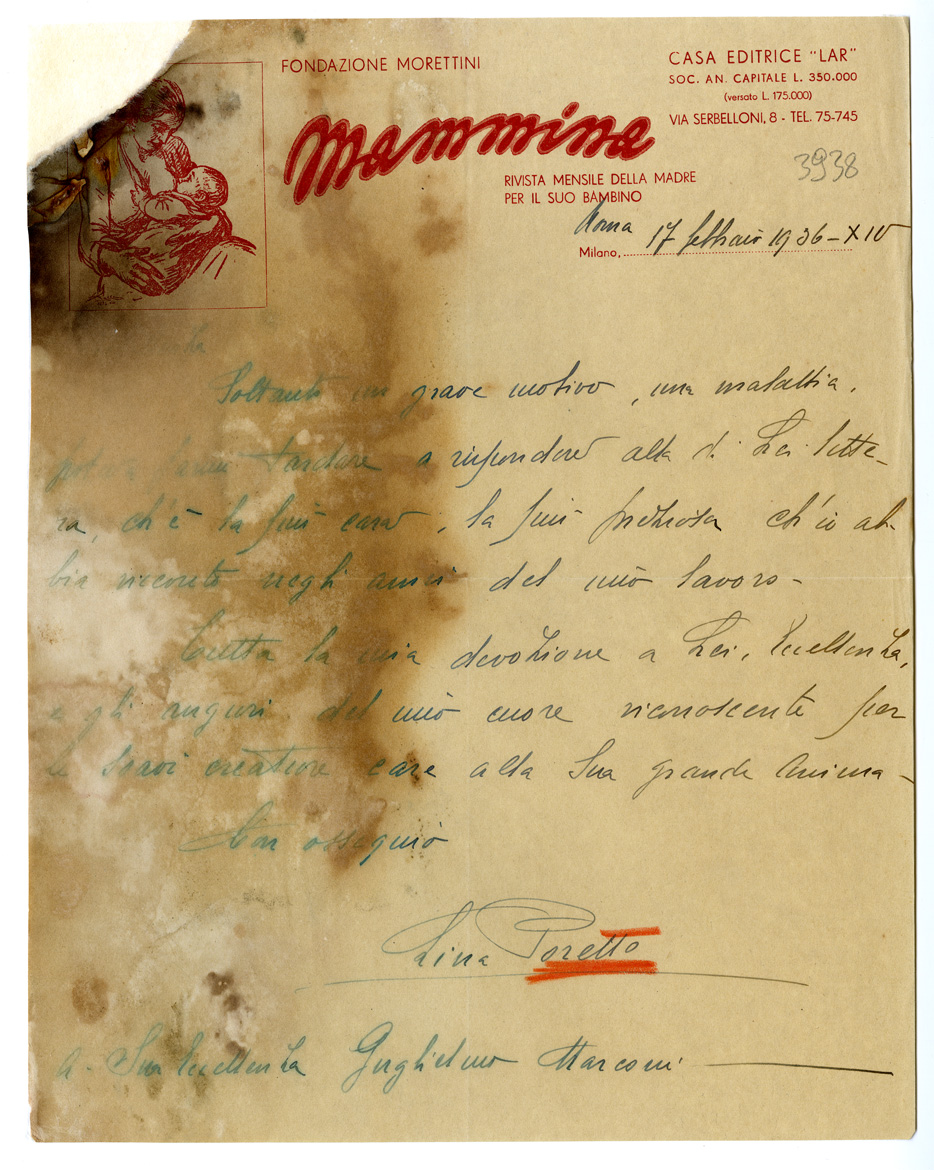 FONDAZIONE MORETTINI
CASA EDITRICE "LAR"
SOC. AN. CAPITALE L. 350.000
(versato L. 175.000)
VIA SERBELLONI, 8 - TEL. 75-745
Mammina
RIVISTA MENSILE DELLA MADRE
PER IL SUO BAMBINO
3938
Roma
Milano, 17 febbraio 1936-XIV
Soltanto un grave motivo, una malattia,
tardare a rispondere alla di Lei lette-
ra, ch'è la più cara, la più preziosa ch'io ab-
bia ricevuto negli anni del mio lavoro -
Tutta la mia devozione a Lei, Eccellenza,
e gli auguri del mio cuore riconoscente per
le soavi creature care alla Sua grande Anima -
Con ossequio
Lina Poretto
A Sua Eccellenza Guglielmo Marconi